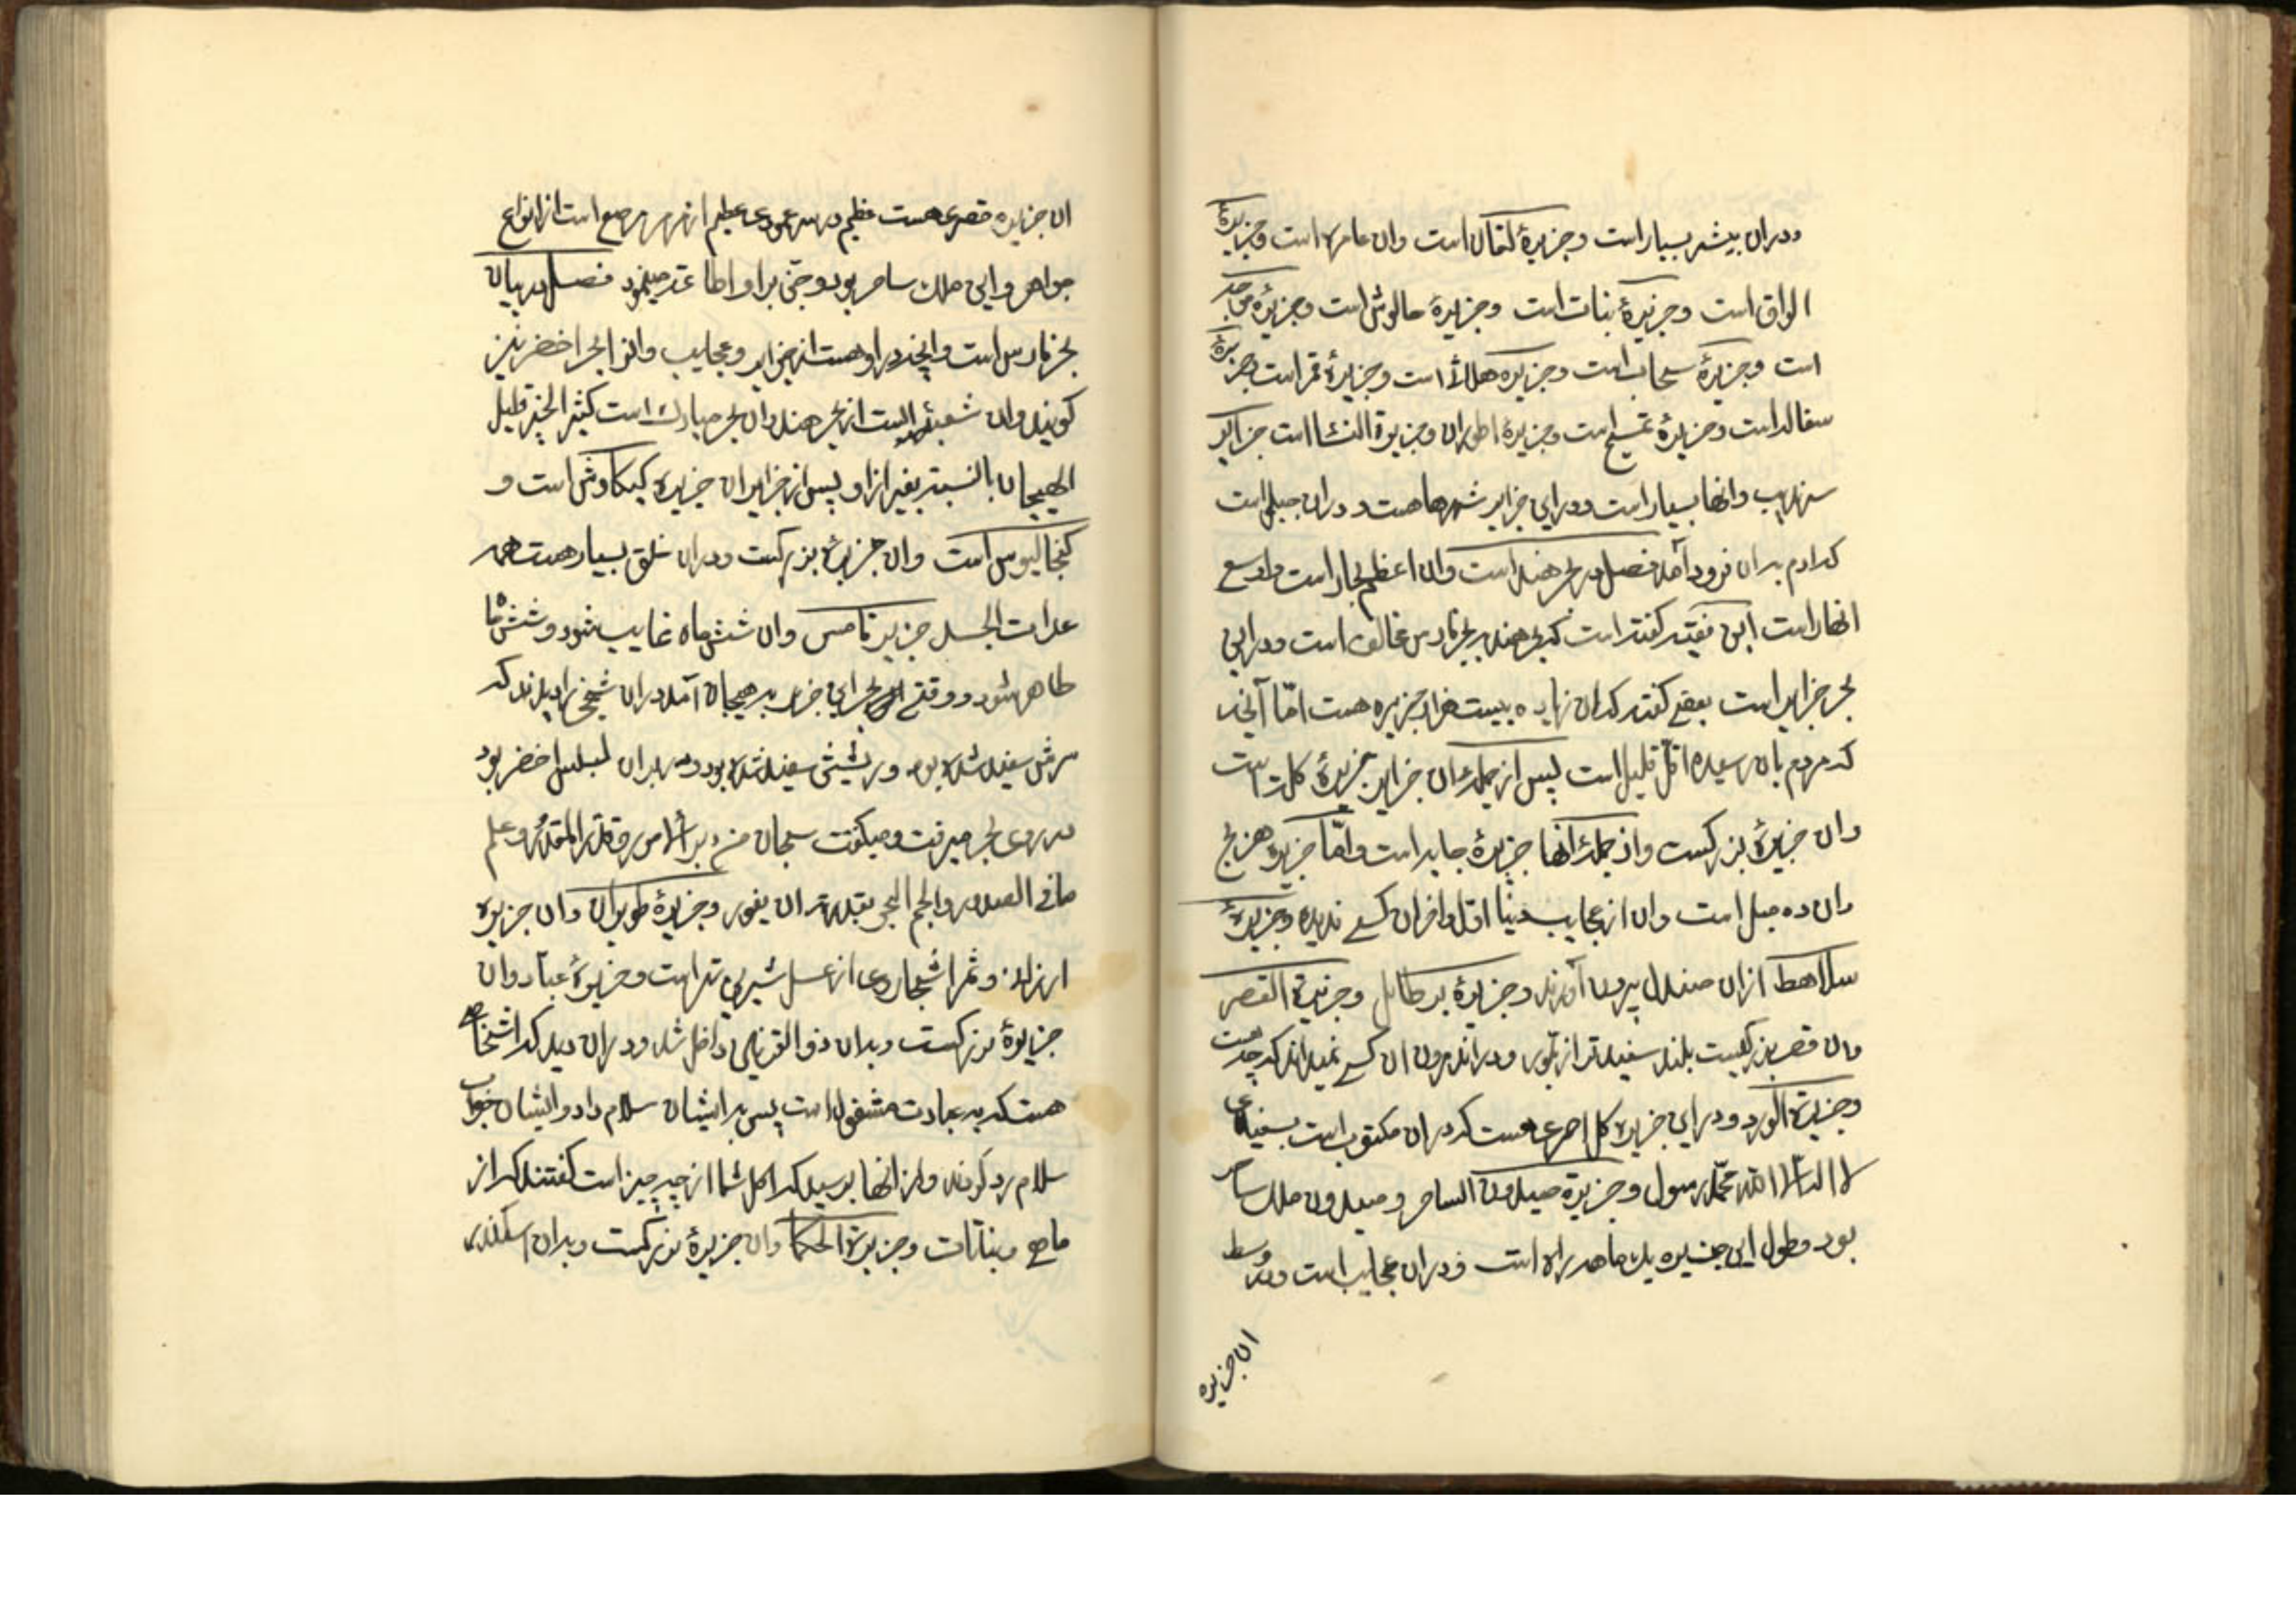 ودران بیشه بسیار است وجزیرهٔ لقمان است وان عامره است وجزیرهٔ
الواق است وجزیرهٔ بنات است وجزیرهٔ حالوش است وجزیرهٔ
است وجزیرهٔ سحاب است وجزیره است وجزیرهٔ قمر است وجزیرهٔ
است وجزیرهٔ است وجزیرهٔ اطوران وجزیرة النسا است جزایر
سرندیب وانها بسیار است ودر این جزایر شهرها هست ودران جبلی است
که ادم بدان فرود آمد فصل در بحر هند است وان اعظم بحار است واوسع
انهار است ابن فقیه کفته است که بحر هند بر بحر فارس است ودر این
بحر جزایر است بعضی کفته که دران زیاده بیست هزار جزیره هست امّا آنچه
که مردم بان رسیده اقلّ قلیل است پس از جملهٔ ان جزایر جزیرهٔ کله است
وان جزیرهٔ بزرکست واز جملهٔ آنها جزیرهٔ جابه است وامّا جزیره هریج
وان ده میل است وان از عجایب دنیا اوّل واخر ان کسی ندیده وجزیرهٔ
سلاهط ازان صندل بیرون آورند وجزیرهٔ برطایل وجزیرة القصر
وان قصر بزرکیست بلند سفیدتر از بلّور ودر اندرون ان کسی نمیداند که چه هست
وجزیرة الورد ودر این جزیره کل احمری هست که دران مکتوب است بسفیدی
لا اله الّا الله محمّد رسول وجزیرة صیدون الساحر وصیدون ملک ساحر
بود وطول این جزیره یک ماهه راه است ودران عجایب است ودر وسط
ان جزیره
ان جزیره قصری هست عظیم در سر عمودی عظیم از مرمر مرصع است از انواع
جواهر واین ملک ساحر بود وجنّ بر او اطاعت مینمود فصل در بیان
بحر فارس است وانچه در او هست از جزایر وعجایب وانرا بحر اخضر نیز
کویند وان شعبه‌ایست از بحر هند وان بحر مبارک است کثیر الخیر قلیل
الهیجان بالنسبه بغیر از او پس از جزایر ان جزیره کیکاوش است و
کنجالیوس است وان جزیرهٔ بزرکست ودران خلق بسیار هست همه
جزیره تامس وان شش ماه غایب شود وشش ماه
ظاهر شود ووقتی بحر این جزیره به هیجان آمد دران شیخی را دیدند که
سرش سفید شده بود وریشش سفید شده بود ودر بر ان لباس اخضر بود
در روی بحر میرفت ومیکفت سبحان من دبر الامور وقدّر المقدّر وعلم
مافی الصدور والجم البحر بقدرته ان یفور وجزیرهٔ طویران وان جزیره
وثمر اشجار وی از عسل شیرین تر است وجزیرهٔ عبّاد وان
جزیرهٔ بزرکست وبدان ذو القرنین داخل شد ودران دید که اشخاصی
هست که به عبادت مشغول است پس بر ایشان سلام داد وایشان جواب
سلام رد کردند واز انها پرسید که اکل شما از چه چیز است کفتند که از
ماهی ونباتات وجزیرة الحکما وان جزیرهٔ بزرکست وبدان اسکندر